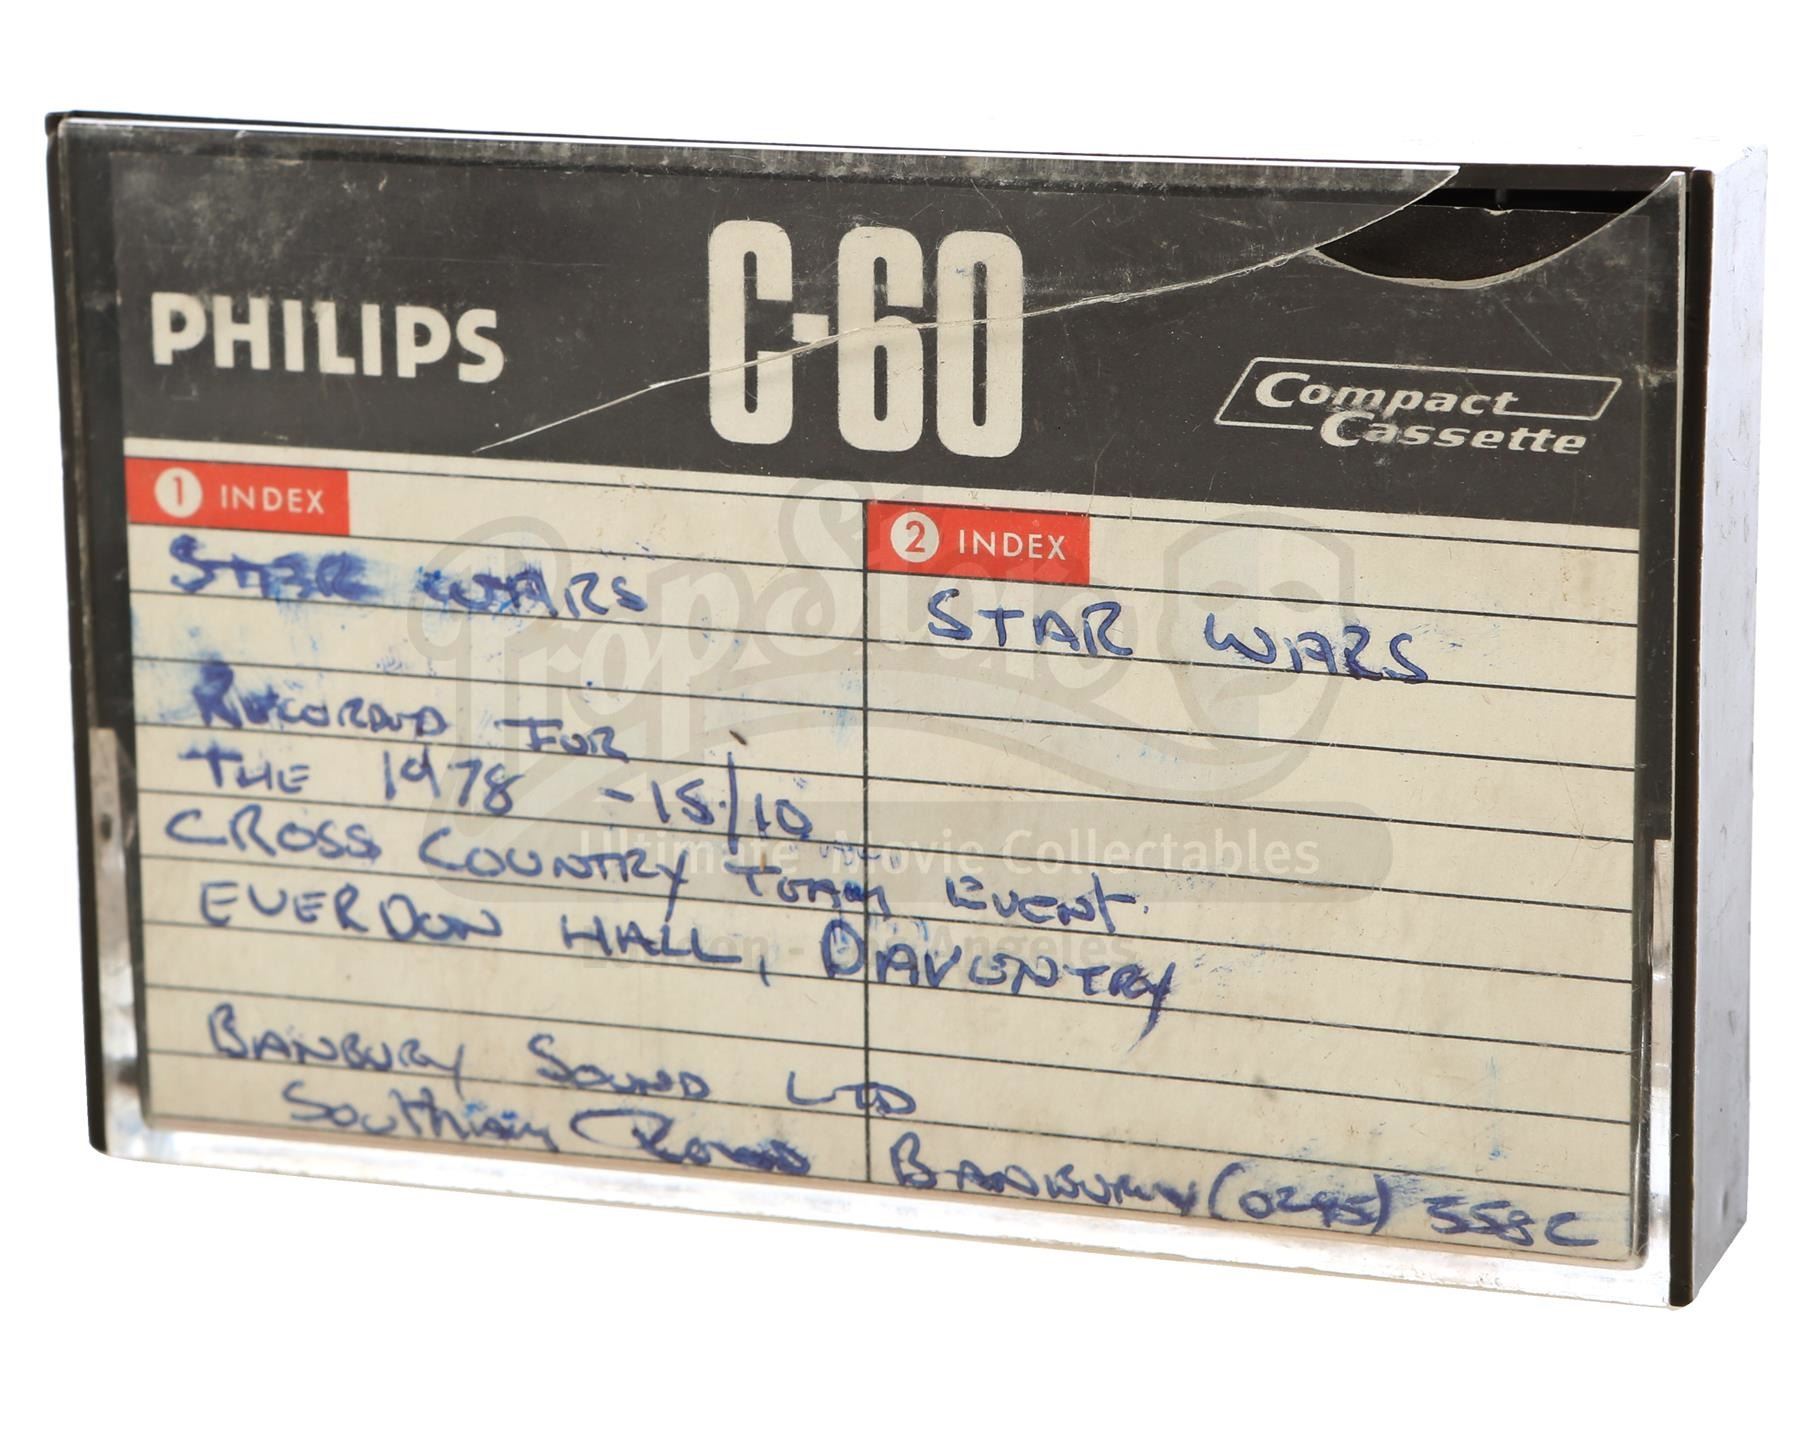 PHILIPS
C-60
Compact
Cassette
1 INDEX
STAR WARS
RECORDED FOR
THE 1978 - 15/10
CROSS COUNTRY TEAM EVENT.
EVERDON HALL, DAVENTRY
BANBURY SOUND LTD
SOUTHAM ROAD BANBURY (0295)
2 INDEX
STAR WARS
PropStore
Ultimate Movie Collectables
London - Los Angeles